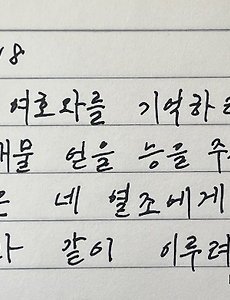 18
여호와를 기억하라
재물 얻을 능을 주
네 열조에게
같이 이루려